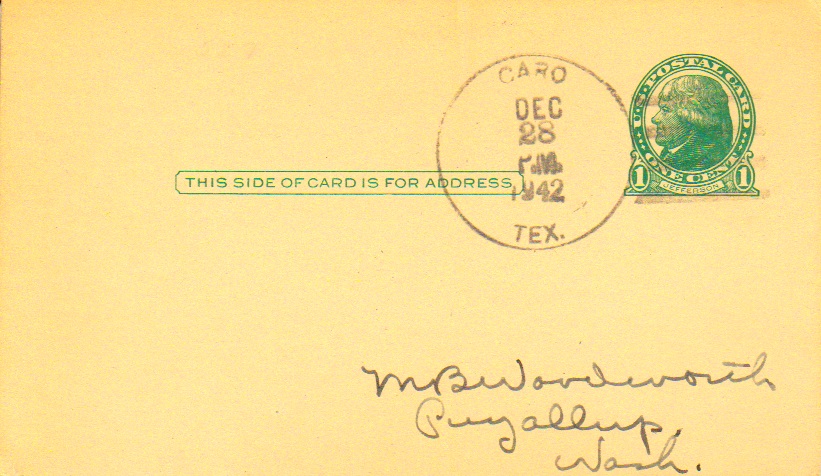 CARO
DEC
28
P.M.
1942
TEX.
U.S. POSTAL CARD
ONE CENT
1 JEFFERSON 1
THIS SIDE OF CARD IS FOR ADDRESS
M B Woodworth
Puyallup,
Wash.